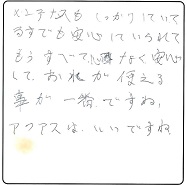 メンテナンスも しっかりしていて
るすでも安心していられて
もうすべて心配なく安心
して、お水が使える
事が一番ですね。
アクアスは、いいですね